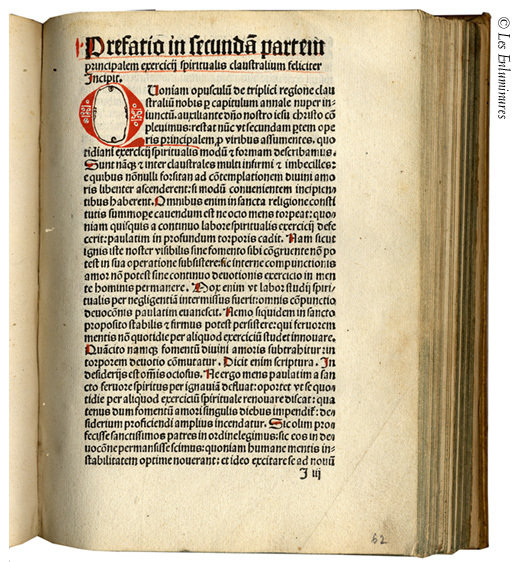 Prefatio in secundā partem
principalem exercicij spiritualis claustralium feliciter
Incipit.
QUoniam opusculū de triplici regione clau
straliū nobis ꝑ capitulum annale nuper in
iunctū auxiliante dño nostro iesu christo cō
pleuimus: restat nūc vt secundam ꝑtem ope
ris principalem, ꝓ viribus assumentes, quo
tidiani exercicij spiritualis modū & formam describamus.
Sunt nāqꝫ & inter claustrales multi infirmi & imbecilles:
e quibus nōnulli forsitan ad cōtemplationem diuini amo
ris libenter ascenderent: si modū conuenientem incipien
tibus haberent. Omnibus enim in sancta religione consti
tutis summope cauendum est ne ocio mens torpeat: quo
niam quisquis a continuo labore spiritualis exercicij defe
cerit: paulatim in profundum torporis cadit. Nam sicut
ignis iste noster visibilis sine fomento sibi cōgruente nō po
test in sua operatione subsistere: sic interne compunctionis
amor nō potest sine continuo deuotionis exercicio in men
te hominis permanere. Mox enim vt labor studij spiri
tualis per negligentiā intermissus fuerit: omnis cōpunctio
deuotionis paulatim euanescit. Nemo siquidem in sancto
proposito stabilis & firmus potest persistere: qui feruorem
mentis nō quotidie per aliquod exerciciū studet innouare.
Quācito namqꝫ fomentū diuini amoris subtrahitur: in
torporem deuotio cōmutatur. Dicit enim scriptura. In
desiderijs est om̄is ociosus. Ne ergo mens paulatim a san
cto feruore spiritus per ignauiā defluat: oportet vt se quo
tidie per aliquod exerciciū spirituale renouare discat: qua
tenus dum fomentū amoris singulis diebus impendit͛: de
siderium proficiendi amplius incendatur. Sic olim pro
fecisse sanctissimos patres in ordine legimus: sic eos in de
uocōne permansisse scimus: quoniam humane mentis in
stabilitatem optime nouerant: et ideo excitare se ad nouū
I iij
62
© Les Enluminures